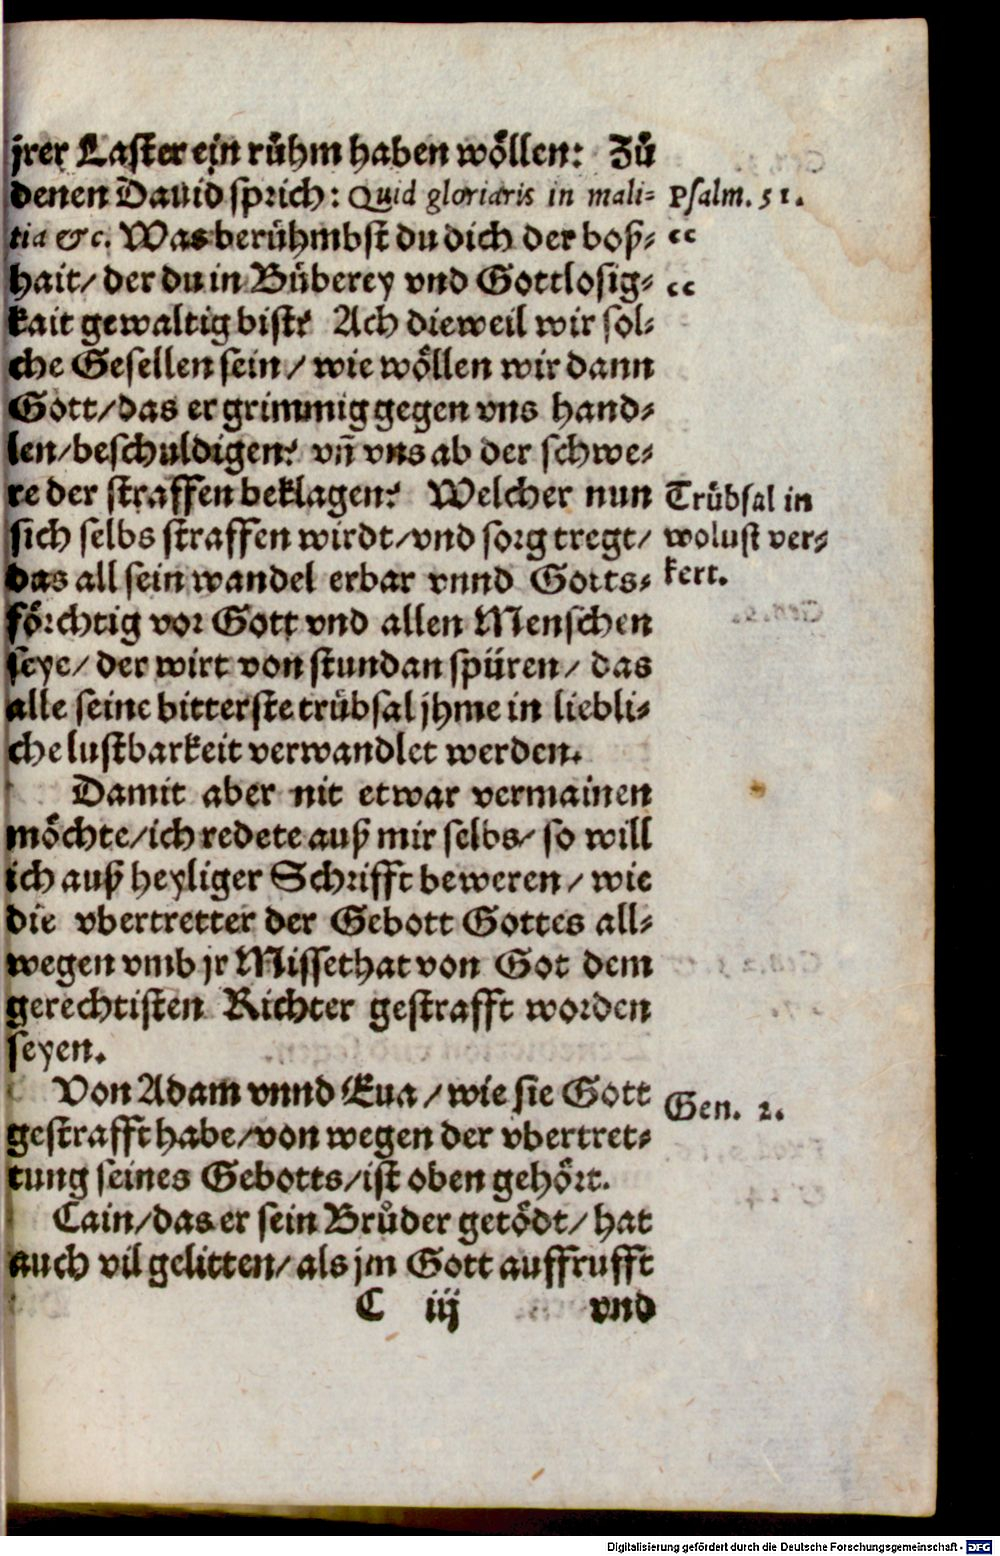 jrer Laster ein rühm haben wöllen: Zů
denen Dauid sprich: Quid gloriaris in mali-
tia &c. Was berühmbst du dich der boß-
hait/ der du in Büberey vnd Gottlosig-
kait gewaltig bist? Ach dieweil wir sol-
che Gesellen sein/ wie wöllen wir dann
Gott/ das er grimmig gegen vns hand-
len/ beschuldigen? vñ vns ab der schwe-
re der straffen beklagen? Welcher nun
sich selbs straffen wirdt/ vnd sorg tregt/
das all sein wandel erbar vnnd Gotts-
förchtig vor Gott vnd allen Menschen
seye/ der wirt von stund an spüren/ das
alle seine bitterste trübsal jhme in liebli-
che lustbarkeit verwandlet werden.
Damit aber nit etwar vermainen
möchte/ ich redete auß mir selbs/ so will
ich auß heyliger Schrifft beweren/ wie
die vbertretter der Gebott Gottes all-
wegen vmb jr Missethat von Got dem
gerechtisten Richter gestrafft worden
seyen.
Von Adam vnnd Eua/ wie sie Gott
gestrafft habe/ von wegen der vbertret-
tung seines Gebotts/ ist oben gehört.
Cain/ das er sein Brůder getödt/ hat
auch vil gelitten/ als jm Gott auffrufft
C iij vnd
Psalm. 51.
“
“
Trübsal in
wolust ver-
kert.
Gen. 2.
Digitalisierung gefördert durch die Deutsche Forschungsgemeinschaft - DFG